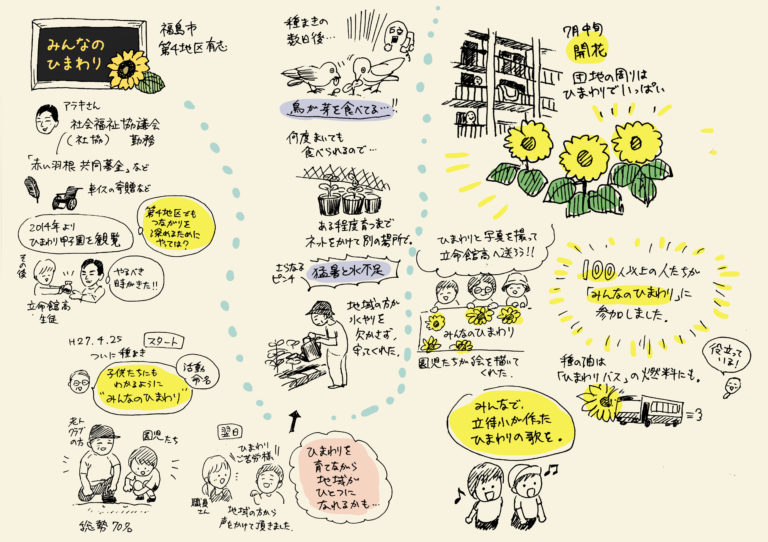 みんなの
ひまわり
福島市
第4地区有志
アラキさん
社会福祉協議会
(社協) 勤務
「赤い羽根 共同募金」など
車イスの寄贈など
2014年より
ひまわり甲子園を観覧
第4地区でも
つながりを
深めるために
やっては?
その後
やるべき
時がきた!!
立命館高
生徒
H27.4.25
スタート
ついに種まき
子供たちにも
わかるように
"みんなのひまわり"
活動
命名
老人
クラブ
の方
園児たち
総勢70名
翌日
ひまわり
ご苦労様!
職員
さん
地域の方から
声をかけて頂きました。
ひまわりを
育てながら
地域が
ひとつに
なれるかも…
種まきの
数日後…
鳥が芽を食べてる…!!
何度まいても
食べられるので…
ある程度育つまで
ネットをかけて別の場所で。
さらなる
ピンチ
猛暑と水不足
地域の方が
水やりを
欠かさず、
守ってくれた。
7月中旬
開花
団地の周りは
ひまわりでいっぱい
ひまわりと写真を撮って
立命館高へ送ろう!!
みんなのひまわり
園児たちが絵を描いて
くれた。
100人以上の人たちが
「みんなのひまわり」に
参加しました。
種の油は
「ひまわりバス」の燃料にも。
役立って
いる!
みんなで、
立待小が作った
ひまわりの歌を。